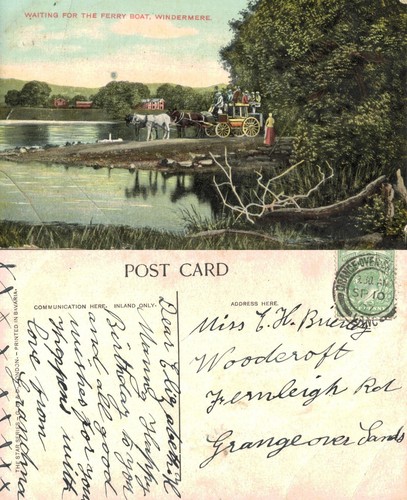 WAITING FOR THE FERRY BOAT, WINDERMERE.
POST CARD
COMMUNICATION HERE. INLAND ONLY.
ADDRESS HERE.
PRINTED IN BAVARIA
Dear Elizabeth H
Many Happy
Birthday to you
and all good
wishes for your
with
love from
Miss E. H.
Woodcroft
Fernleigh Rd
Grange over Sands
SP 10